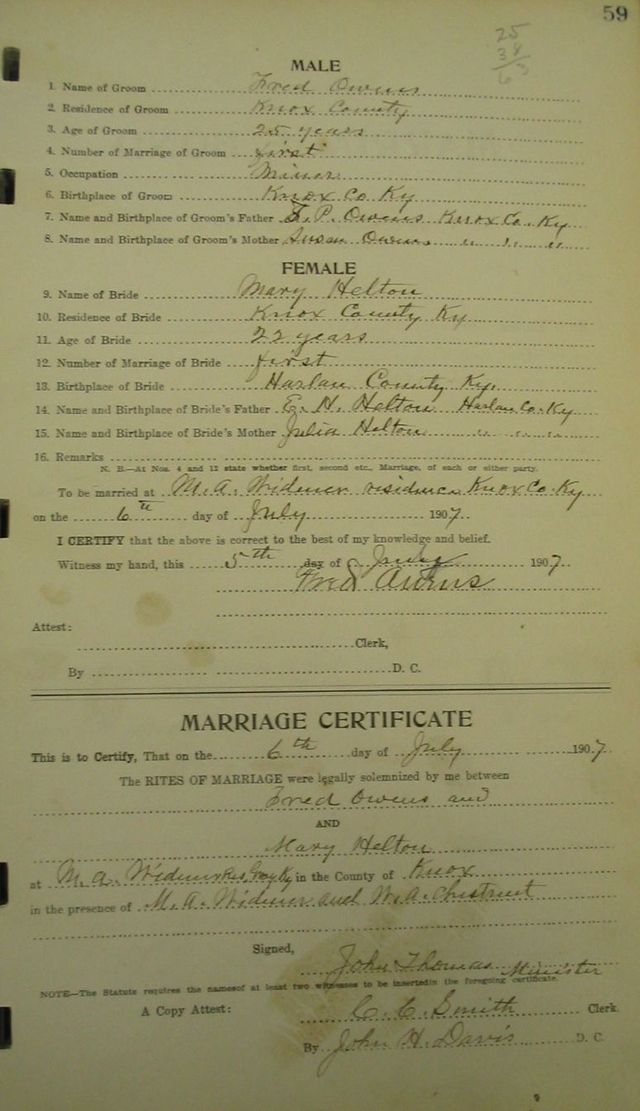 59
25
MALE
1. Name of Groom Fred Owens
2. Residence of Groom Knox County
3. Age of Groom 25 years
4. Number of Marriage of Groom first
5. Occupation Miner
6. Birthplace of Groom Knox Co Ky
7. Name and Birthplace of Groom's Father P. Owens Knox Co. Ky
8. Name and Birthplace of Groom's Mother Susan Owens " " "
FEMALE
9. Name of Bride Mary Helton
10. Residence of Bride Knox County Ky
11. Age of Bride 22 years
12. Number of Marriage of Bride first
13. Birthplace of Bride Harlan County Ky.
14. Name and Birthplace of Bride's Father E. H. Helton Harlan Co. Ky
15. Name and Birthplace of Bride's Mother Julia Helton " " " "
16. Remarks
N. B.—At Nos. 4 and 12 state whether first, second etc., Marriage, of each or either party.
To be married at M. A. Widener residence Knox Co. Ky
on the 6th day of July 1907.
I CERTIFY that the above is correct to the best of my knowledge and belief.
Witness my hand, this 5th day of July 1907
Fred Owens
Attest:
Clerk,
By D. C.
MARRIAGE CERTIFICATE
This is to Certify, That on the 6th day of July 1907.
The RITES OF MARRIAGE were legally solemnized by me between
Fred Owens and
AND
Mary Helton
at M. A. in the County of Knox
in the presence of M. A. Widener and W. A. Chestnut
Signed,
John Thomas Minister
NOTE—The Statute requires the names of at least two witnesses to be inserted in the foregoing certificate.
A Copy Attest: C. C. Smith Clerk.
By John H. Davis D. C.